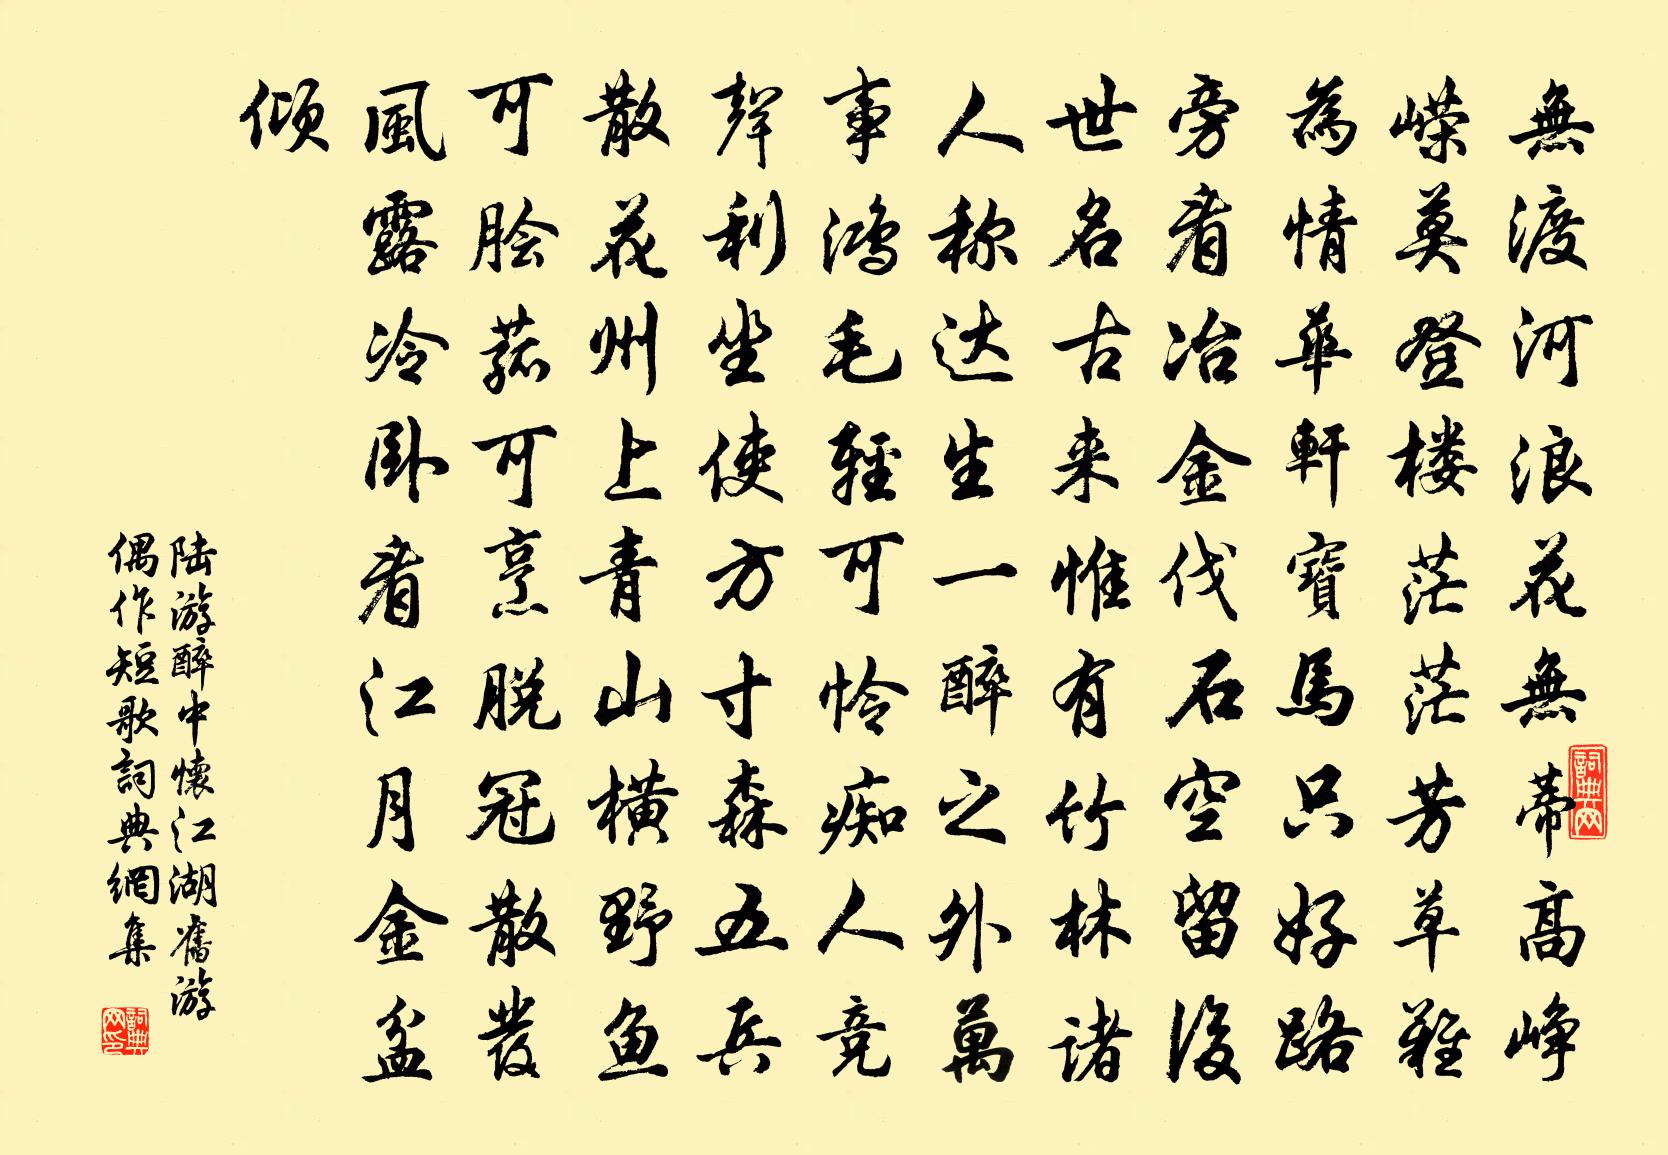 無渡河浪花無蒂高峥
嵘莫登楼茫茫芳草難
為情華軒寶馬只好路
旁看冶金伐石空留後
世名古来惟有竹林诸
人称达生一醉之外萬
事鸿毛輕可怜痴人竞
聲利坐使方寸森五兵
散花州上青山横野鱼
可脍菰可烹脱冠散发
風露冷卧看江月金盆
倾
陆游醉中懷江湖舊游
偶作短歌詞典網集
詞典网
詞典网印